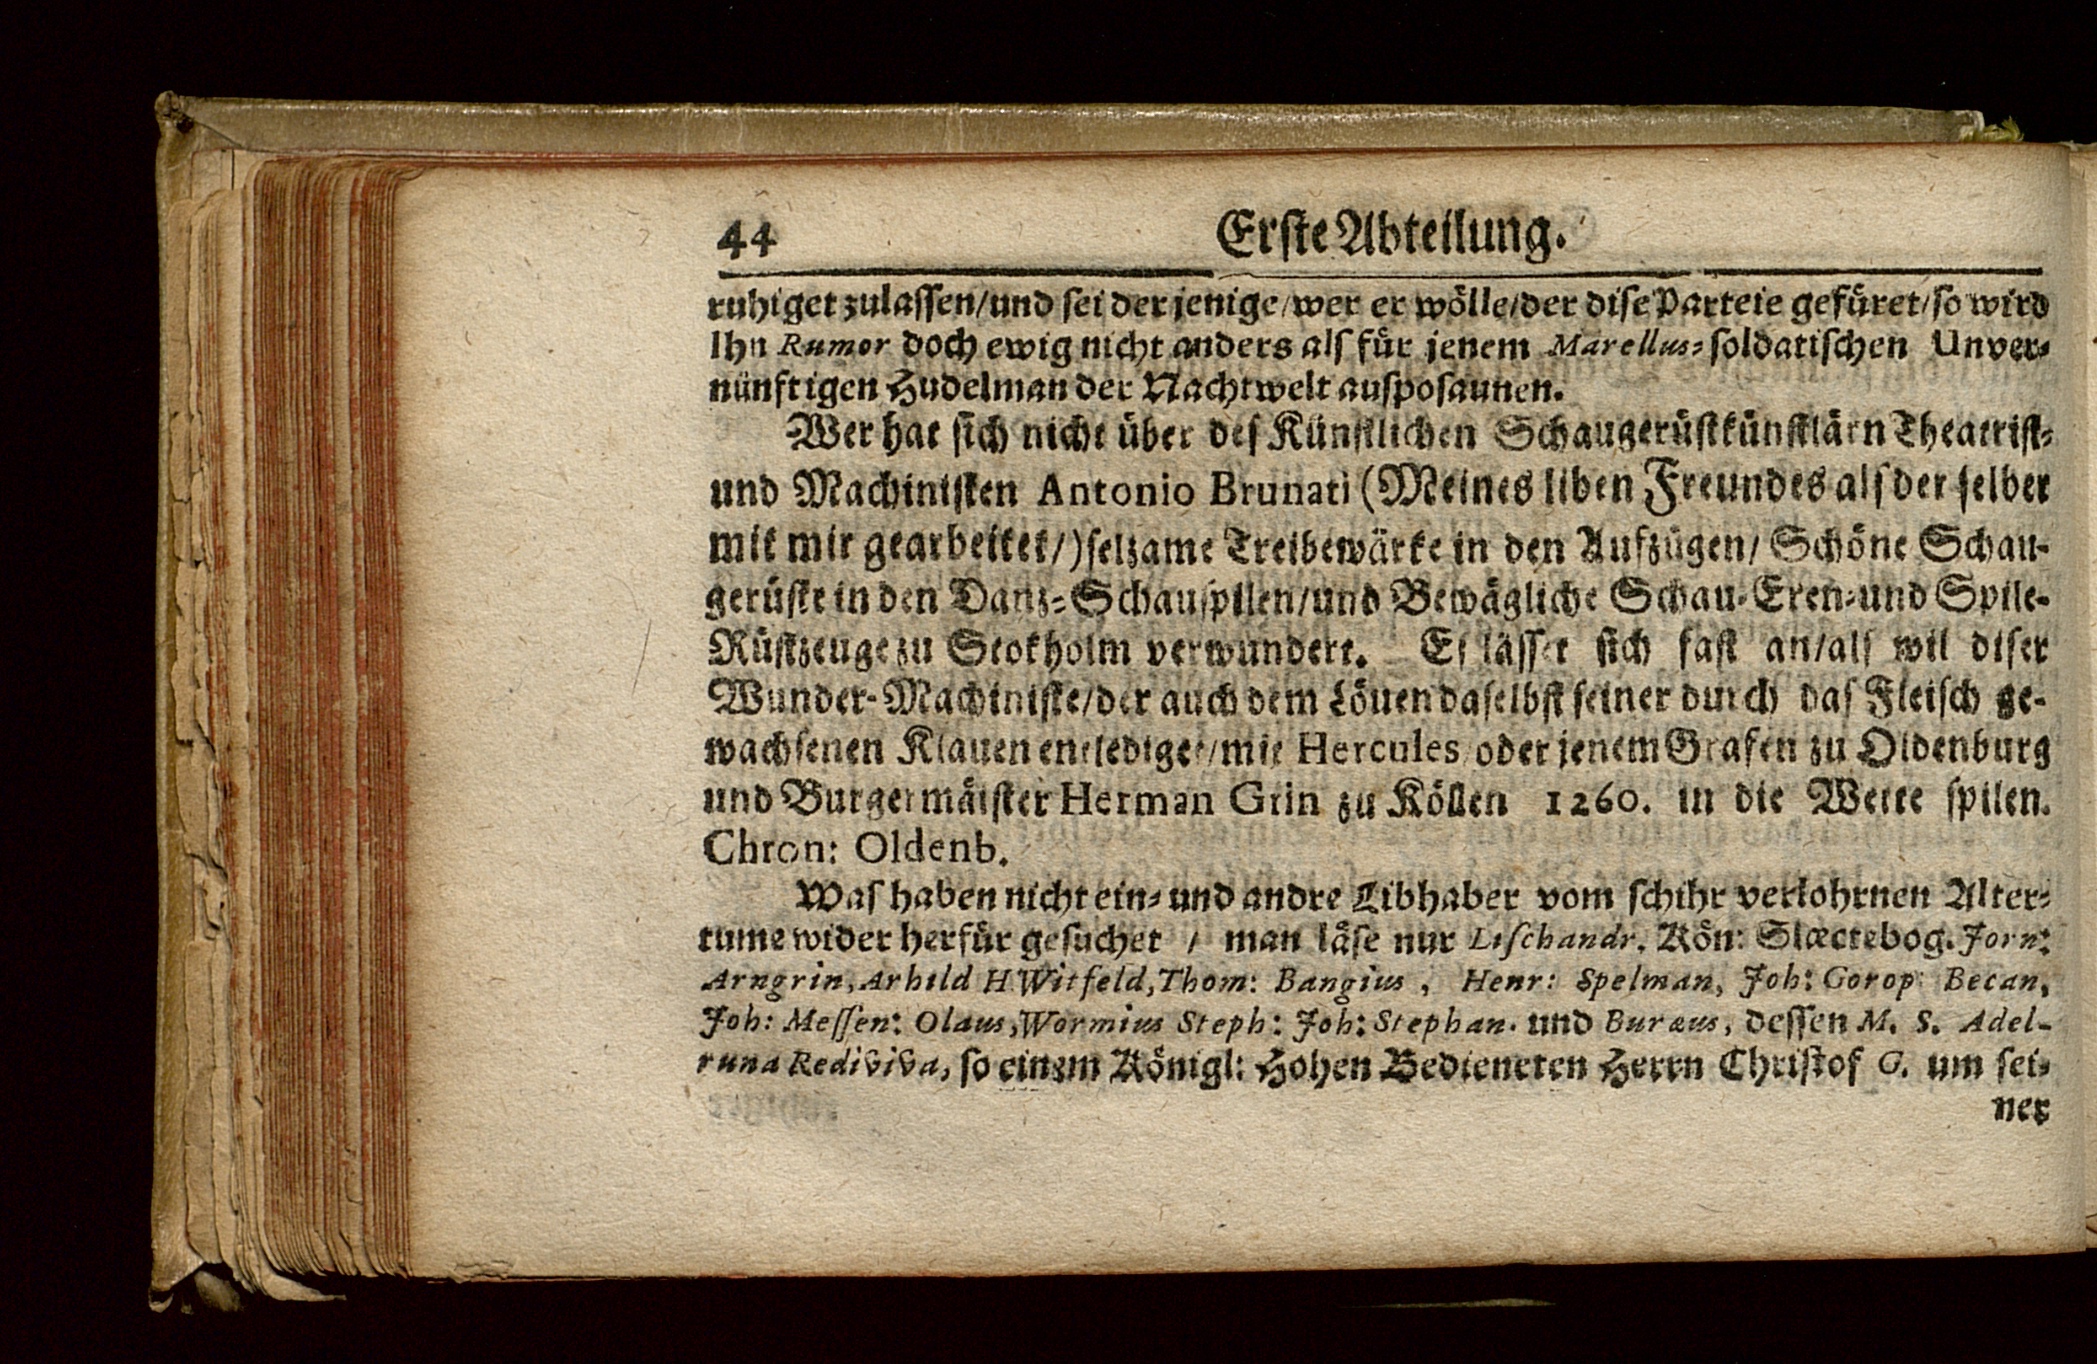 44 Erſte Abteilung.
ruhiget zulaſſen/und ſei der jenige/wer er wölle/der diſe Parteie gefüret/ſo wird
Ihn Rumor doch ewig nicht anders alſ für jenem Marellus⸗ſoldatiſchen Unver⸗
nünftigen Hudelman der Nachtwelt auſpoſaunen.
Wer hat ſich nicht über deſ Künſtlichen Schaugerüſtkünſtlärn Theatriſt⸗
und Machiniſten Antonio Brunati (Meines liben Freundes alſ der ſelber
mit mir gearbeitet/)ſelzame Treibewärke in den Aufzügen/ Schöne Schau-
gerüſte in den Danz⸗Schauſpilen/und Bewägliche Schau-Eren⸗und Spile-
Rüſtzeuge zu Stokholm verwundert. Eſ läſſet ſich faſt an/alſ wil diſer
Wunder-Machiniſte/der auch dem Löuen daſelbſt ſeiner durch daſ Fleiſch ge-
wachſenen Klauen entlediget/mit Hercules oder jenem Grafen zu Oldenburg
und Burgermäiſter Herman Grin zu Köllen 1260. in die Wette ſpilen.
Chron: Oldenb.
Waſ haben nicht ein⸗ und andre Libhaber vom ſchihr verlohrnen Alter⸗
tume wider herfür geſuchet / man läſe nur Liſchandr. Kön: Slœctebog. Jorn:
Arngrin, Arhild H Witfeld, Thom: Bangius, Henr: Spelman, Joh: Gorop: Becan,
Joh: Meſſen: Olaus, Wormius Steph: Joh: Stephan. und Buræus, deſſen M. S. Adel-
runa Rediviva, ſo einem Königl: Hohen Bedieneten Herrn Chriſtof G. um ſei⸗
ner